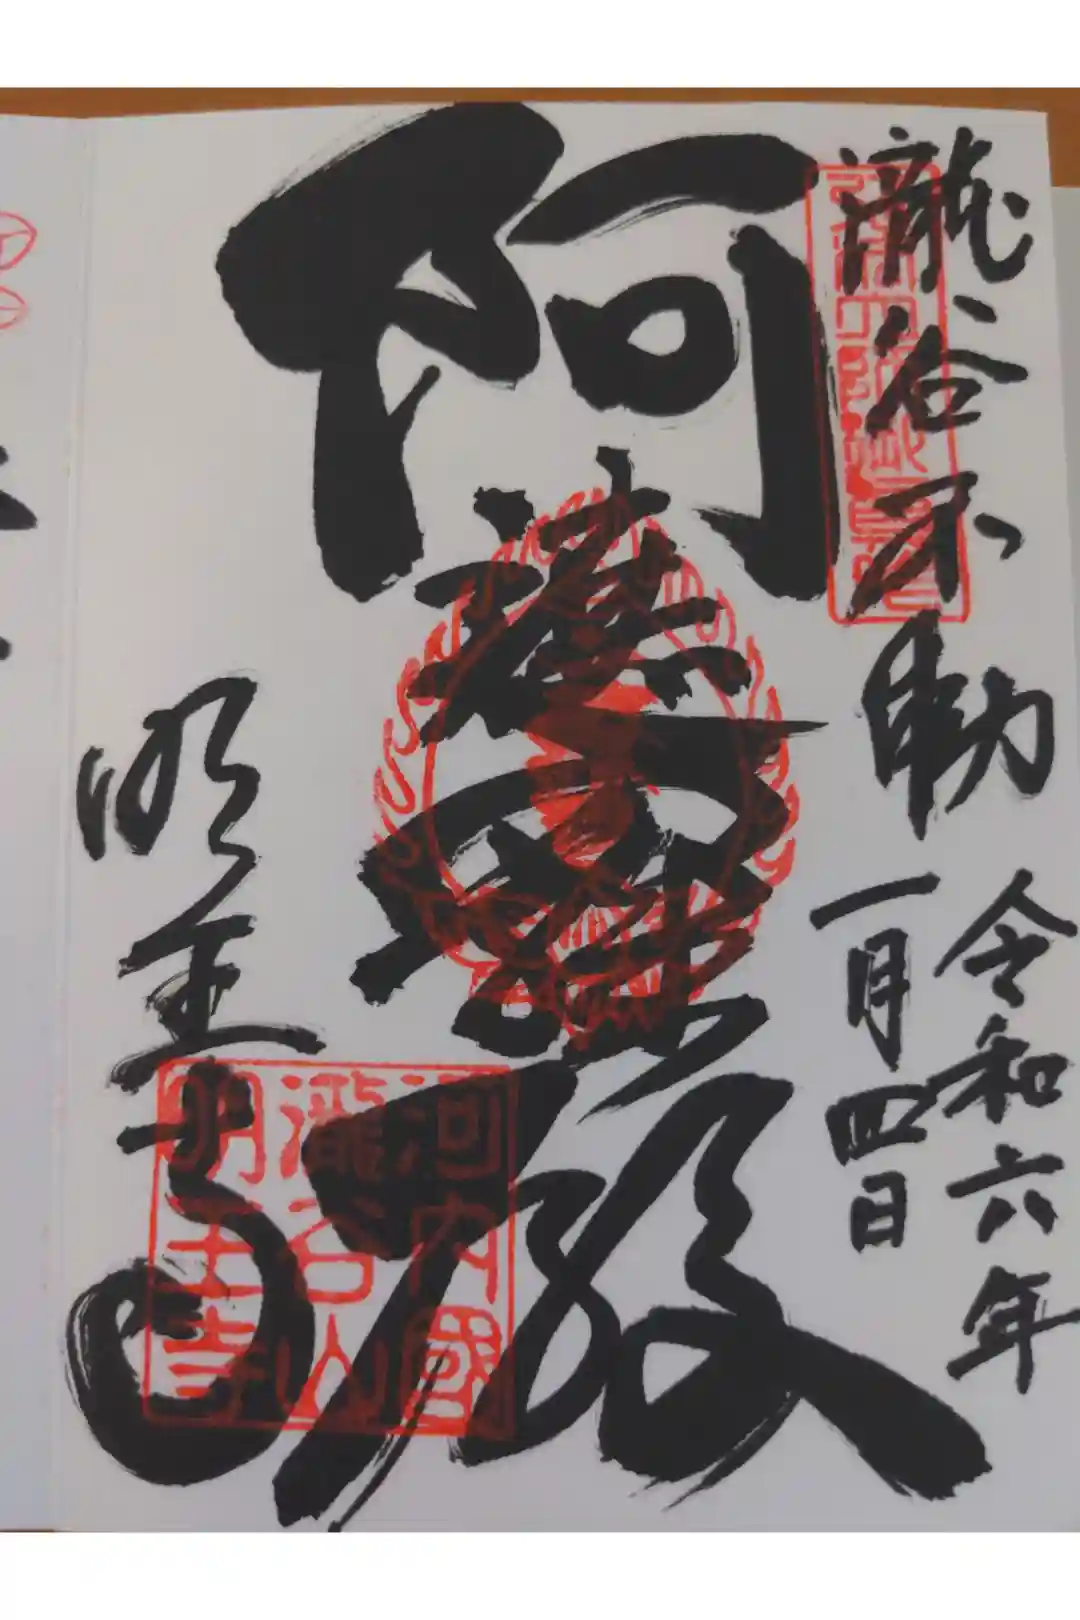 瀧谷不動
令和六年
一月四日
阿遮羅殿
明王寺
河内國
瀧谷山
明王寺